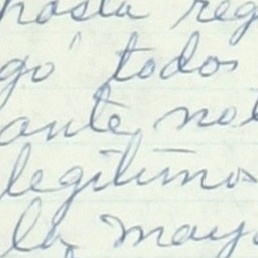 hasta reg
gó todos
ante not
legitimos
la mayo